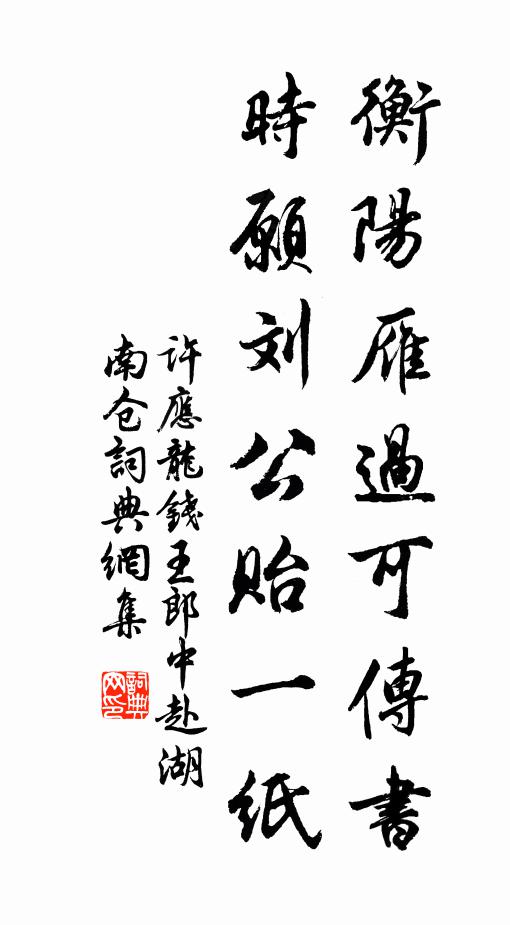 衡陽雁過可傳書
時願刘公貽一紙
許應龍錢王郎中赴湖
南仓詞典網集
詞典网印